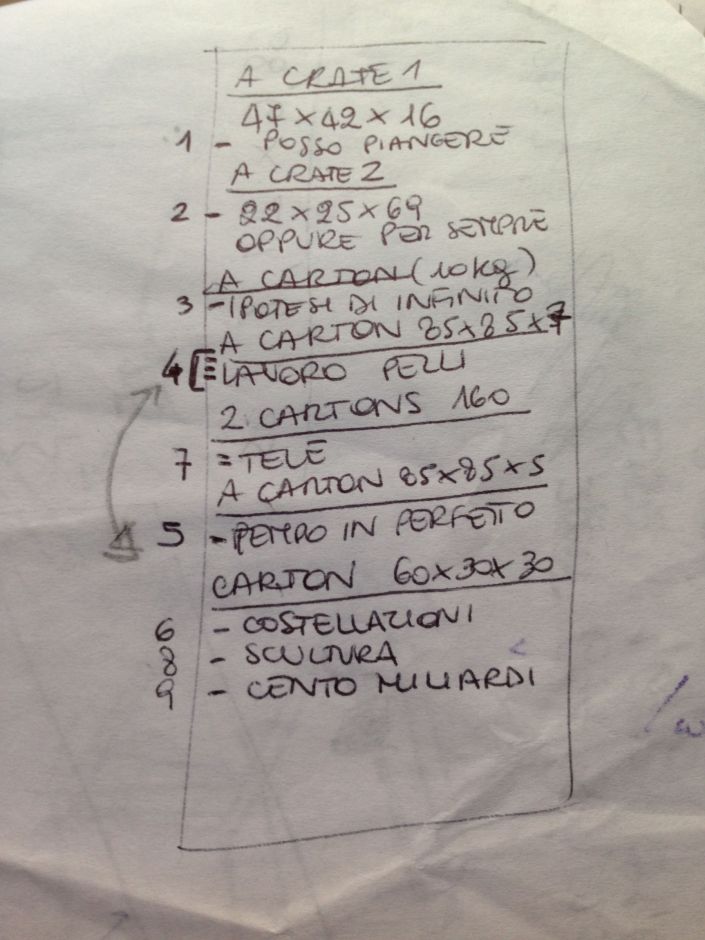 A CRATE 1
47 x 42 x 16
1 - POSSO PIANGERE
A CRATE 2
2 - 22 x 25 x 69
OPPURE PER SEMPRE
A CARTON (10 kg)
3 - IPOTESI DI INFINITO
A CARTON 85 x 85 x 7
4 LAVORO PELLI
2 CARTONS 160
7 = TELE
A CARTON 85 x 85 x 5
5 - TEMPO IN PERFETTO
CARTON 60 x 30 x 30
6 - COSTELLAZIONI
8 - SCULTURA
9 - CENTO MILIARDI